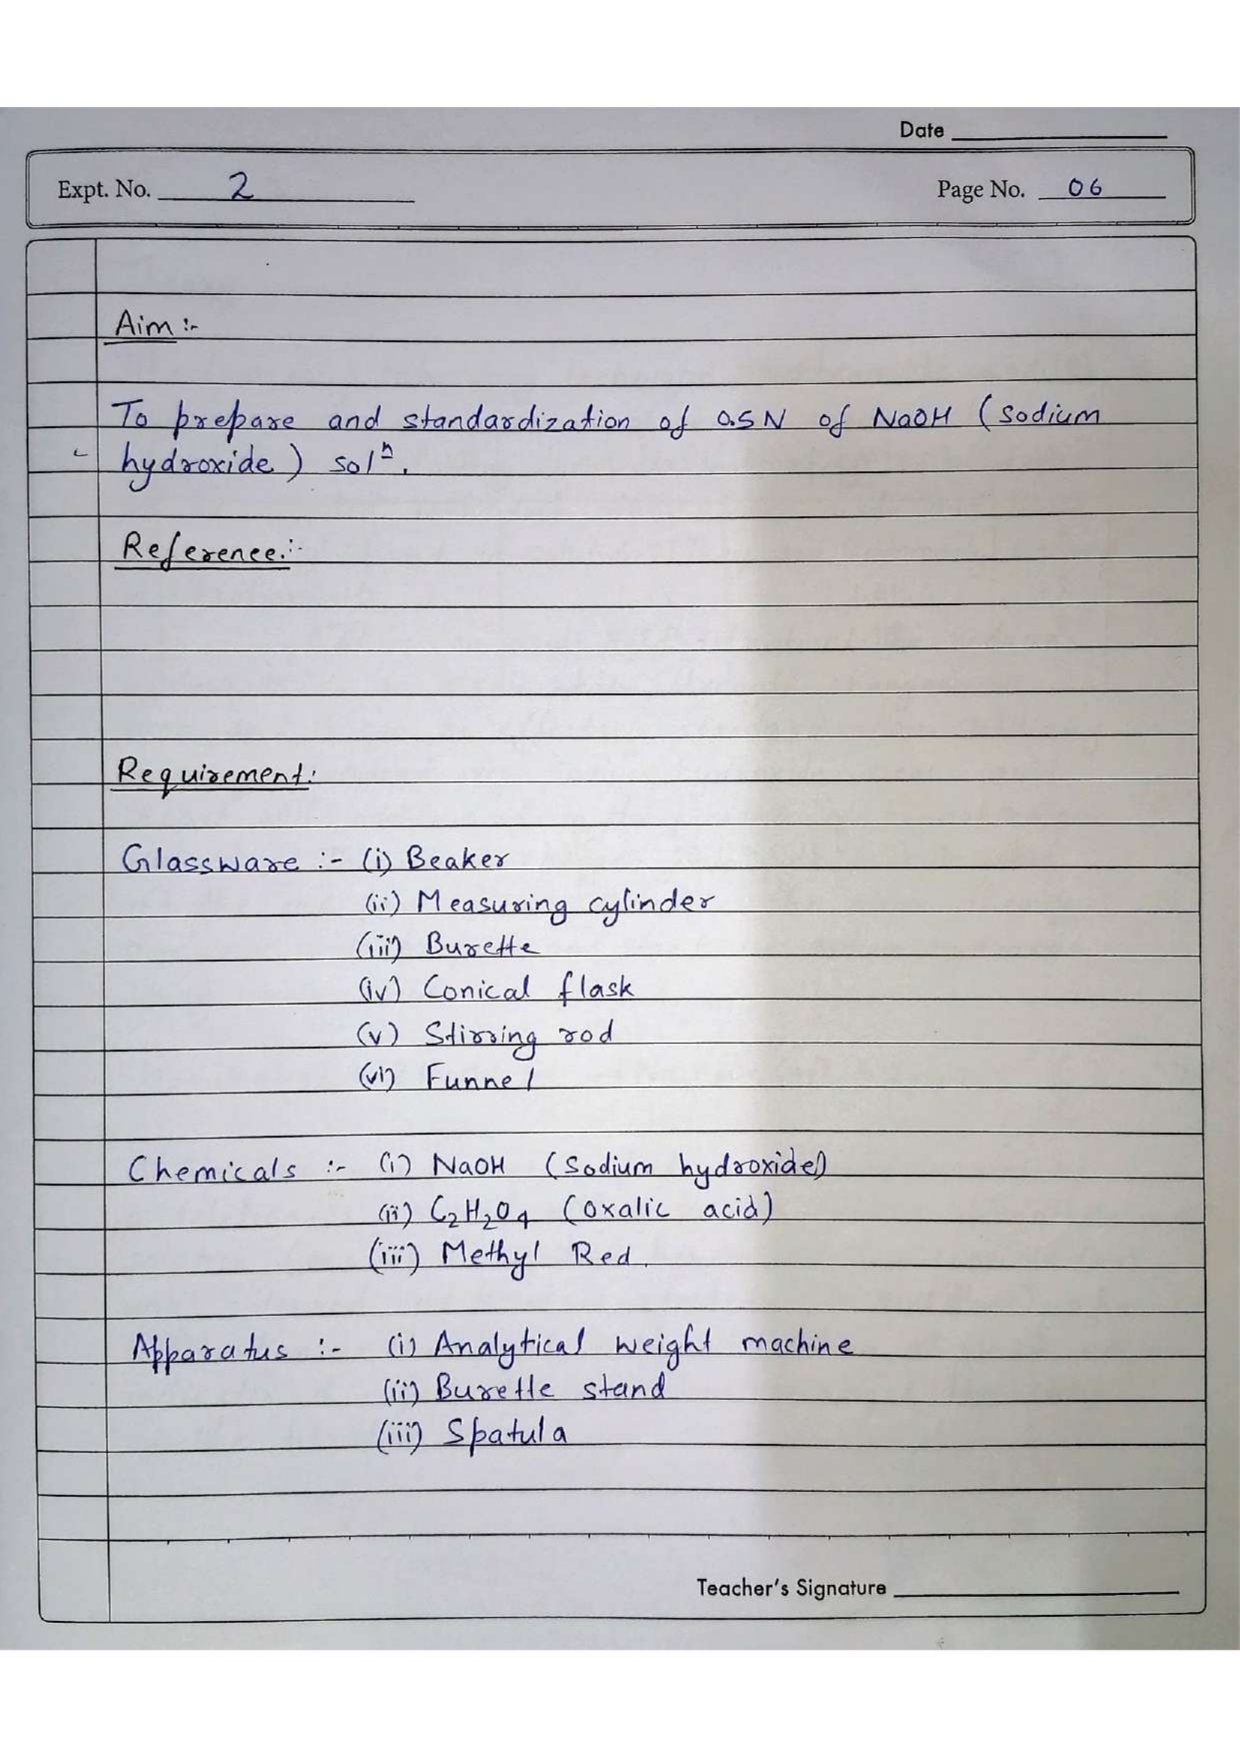 Date
Expt. No. 2
Page No. 06
Aim :-
To prepare and standardization of 0.5 N of NaOH (sodium
hydroxide) solⁿ.
Reference:-
Requirement:
Glassware :- (i) Beaker
(ii) Measuring cylinder
(iii) Burette
(iv) Conical flask
(v) Stirring rod
(vi) Funnel
Chemicals :- (i) NaOH (Sodium hydroxide)
(ii) C₂H₂O₄ (oxalic acid)
(iii) Methyl Red.
Apparatus :- (i) Analytical weight machine
(ii) Burette stand
(iii) Spatula
Teacher's Signature